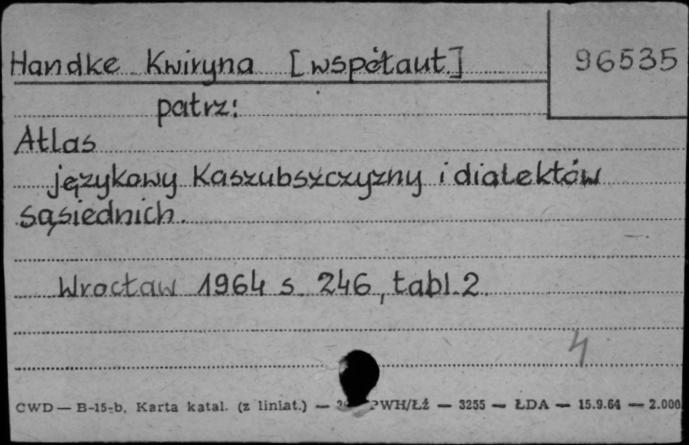 Handke Kwiryna [współaut.] 96535
patrz:
Atlas
językowy Kaszubszczyzny i dialektów
sąsiednich.
Wrocław 1964 s. 246, tabl. 2.
4
CWD — B-15-b. Karta katal. (z liniat.) — PWH/Łż — 3255 — ŁDA — 15.9.64 — 2.000